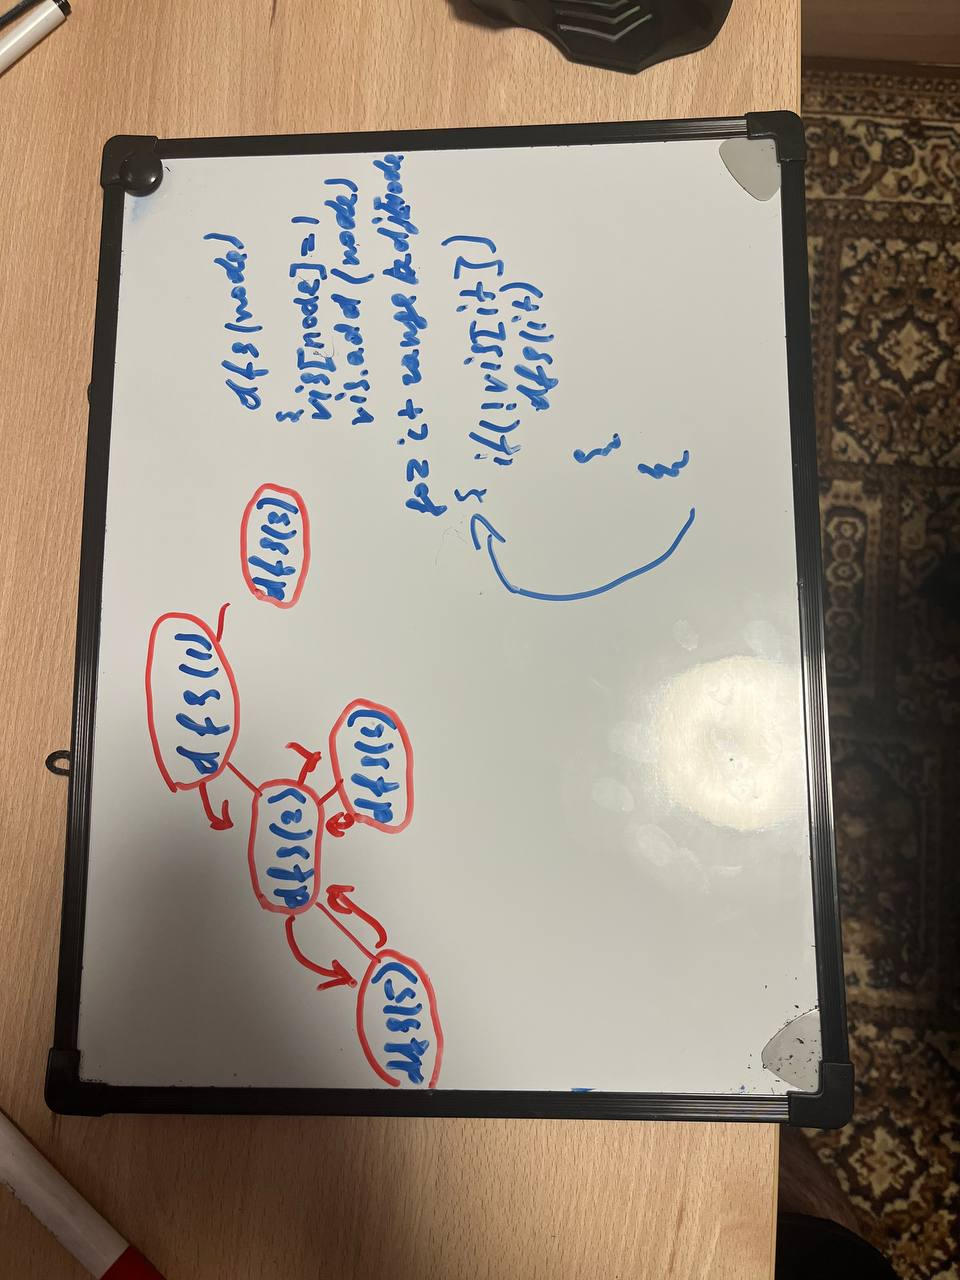 dfs(node)
{
vis[node]=1
vis.add(node)
for it range adj[node
{ if(!vis[it])
dfs(it)
}
}
dfs(3)
dfs(1)
dfs(2)
dfs(5)